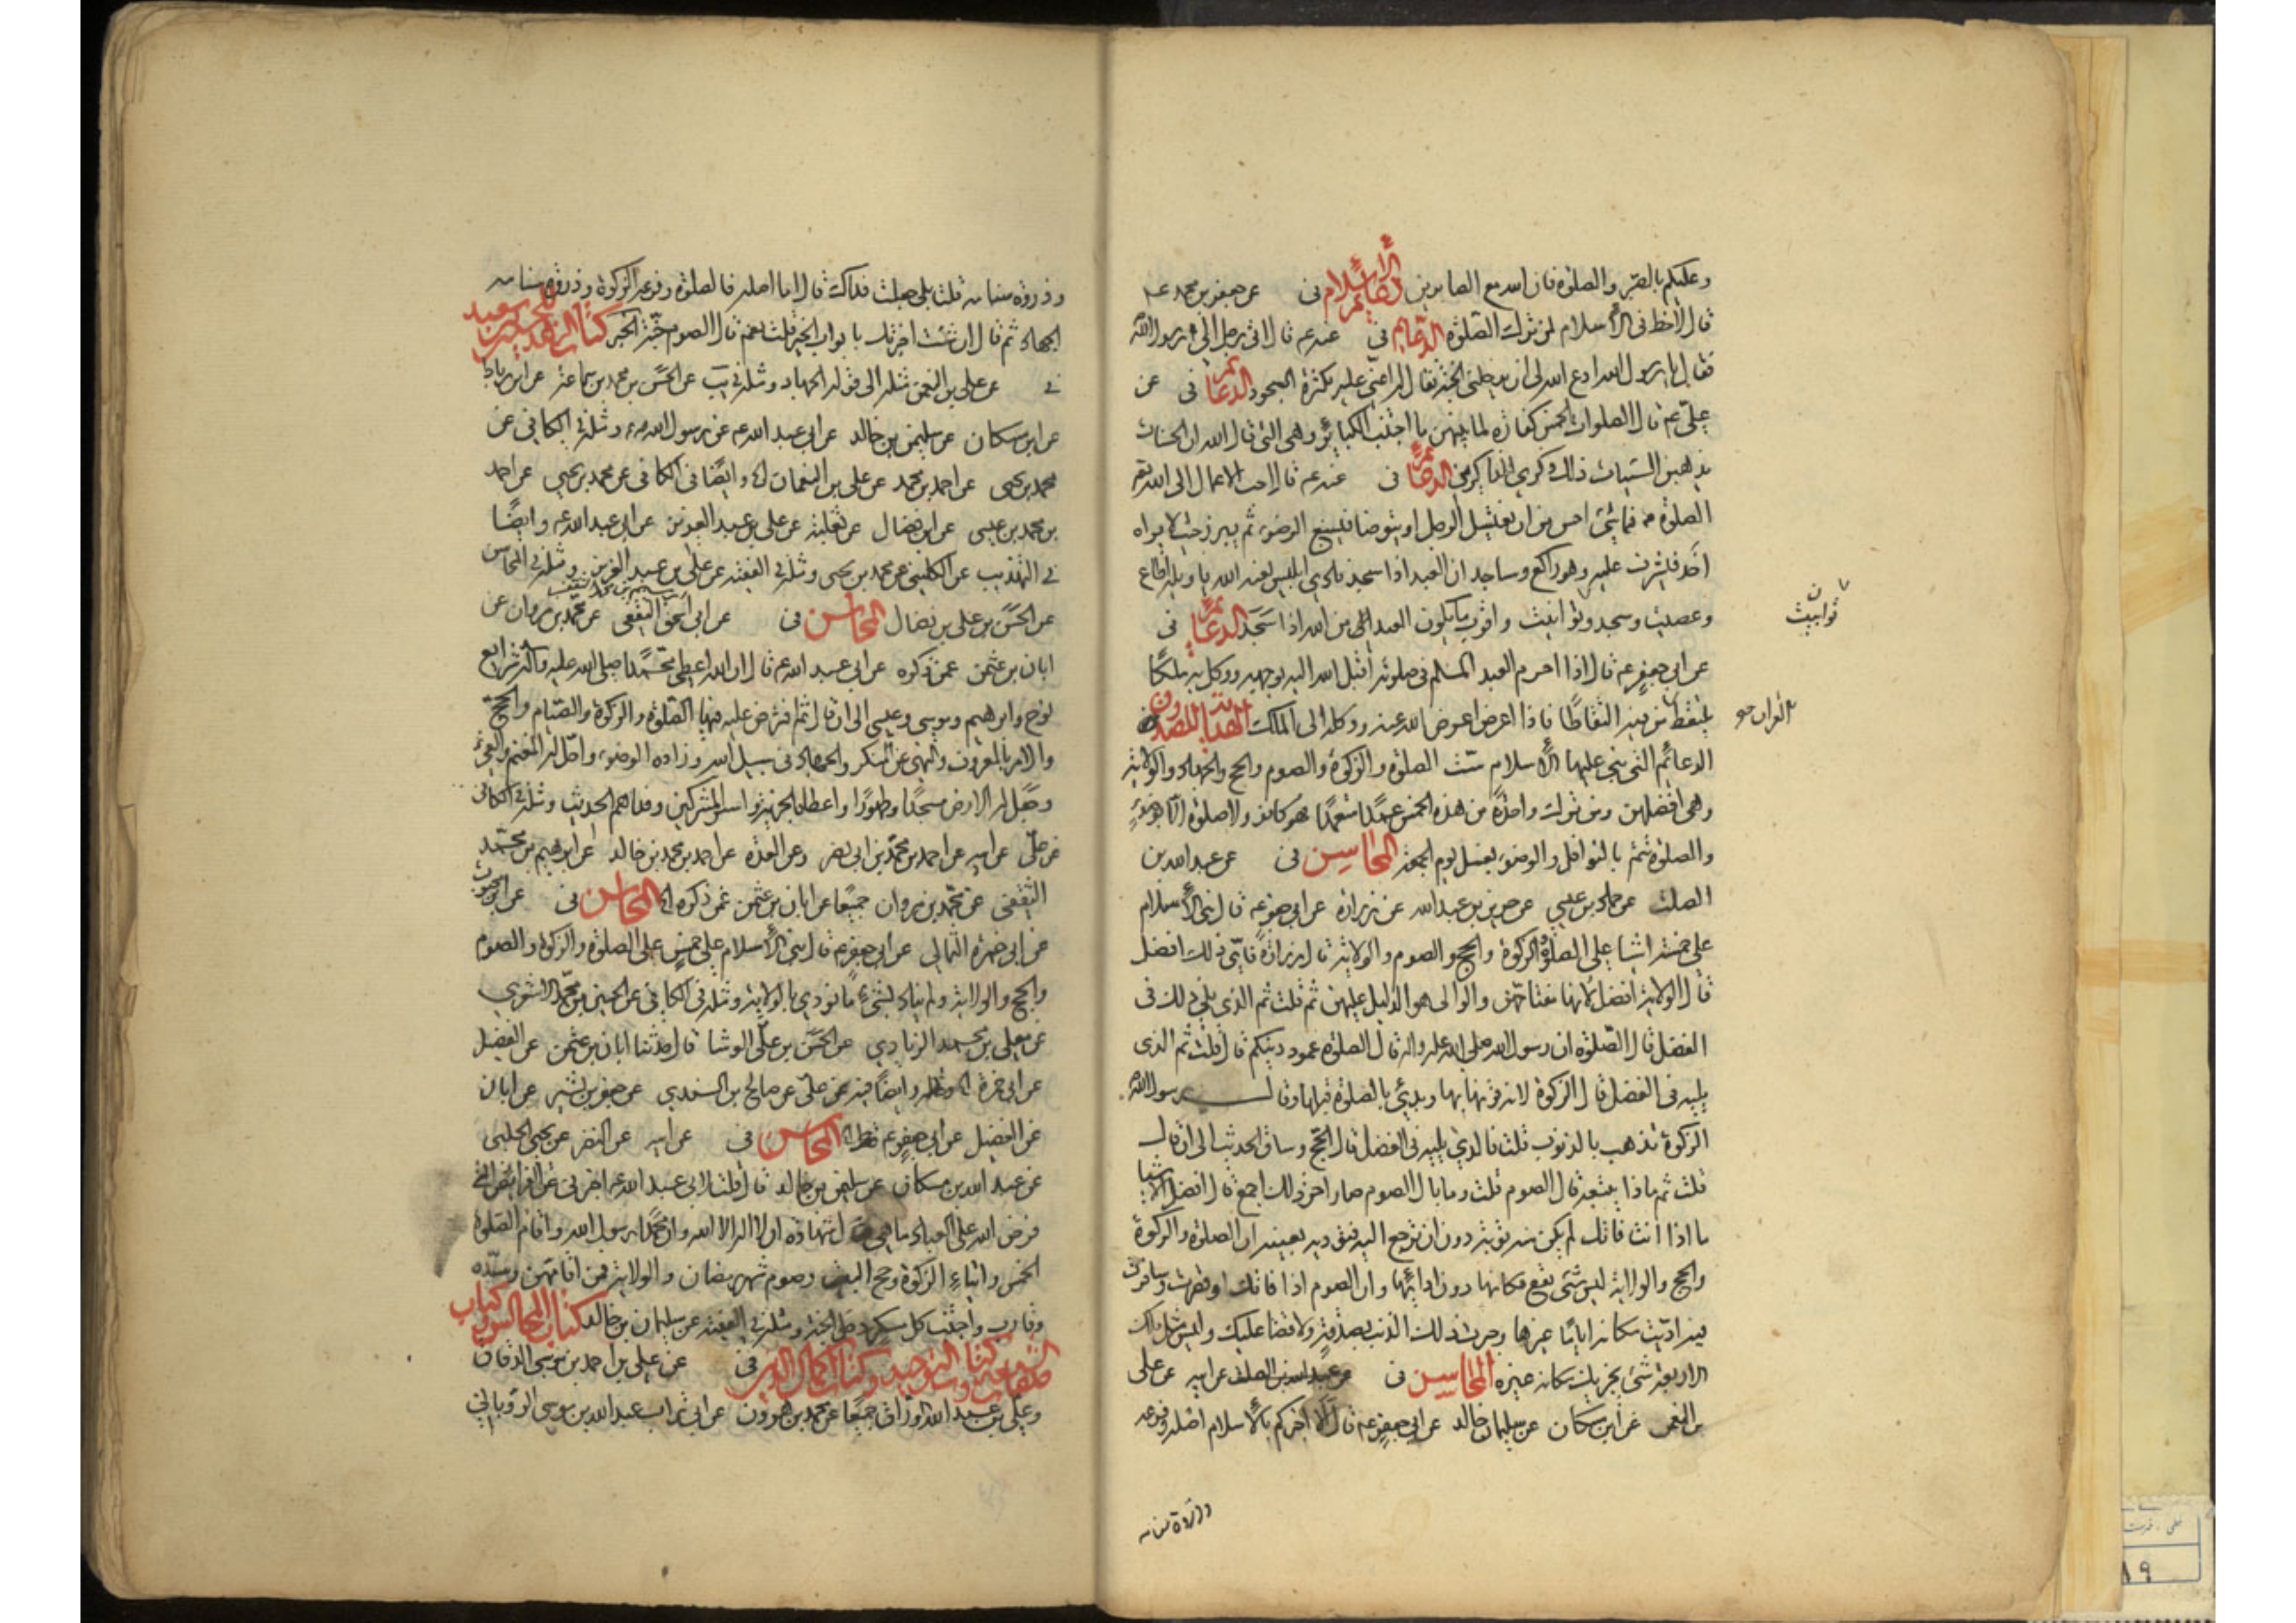 وعليكم بالصبر والصلوة فان الله مع الصابرين دعائم الأسلام فى عن جعفر بن محمد عم
قال لاحظ فى الأسلام لمن ترك الصلوة الدعايم فى عنه عم قال اتى رجل الى رسول الله
فقال يا رسول الله ادع الله لى ان يدخلنى الجنة فقال له اعنى عليه بكثرة السجود الدعائم فى عن
على عم قال الصلوات الخمس كفارة لما بينهن ما اجتنب الكبائر وهى التى قال الله ان الحسنات
يذهبن السيئات ذلك ذكرى للذاكرين الدعائم فى عنه عم قال احب الاعمال الى الله تع
الصلوة فما شئ احسن من ان يغتسل الرجل او يتوضا فيسبغ الوضوء ثم يبرز حيث لا يراه
احد فيشرف عليه وهو راكع وساجد ان العبد اذا سجد نادى ابليس لعنه الله يا ويله اطاع
وعصيت وسجد وابيت واقرب ما يكون العبد الى من الله اذا سجد الدعائم فى
ن
ابيت
عن ابى جعفر عم قال اذا احرم العبد المسلم فى صلوته اقبل الله اليه بوجهه ووكل به ملكا
يلتقط من فيه التقاطا فاذا اعرض اعرض الله عنه ووكله الى الملك الهداية للصدوق
القران
الدعائم التى بنى عليها الأسلام ست الصلوة والزكوة والصوم والحج والجهاد والولاية
وهى افضلهن ومن ترك واحدة من هذه الخمس عمدا متعمدا فهو كافر ولا صلوة الا بوضوء
والصلوة تتم بالنوافل والوضوء بغسل يوم الجمعة المحاسن فى عن عبد الله بن
الصلت عن حماد بن عيسى عن حريز بن عبد الله عن زرارة عن ابى جعفر عم قال بنى الأسلام
على خمسة اشيا على الصلوة والزكوة والحج والصوم والولاية قال زرارة فاى ذلك افضل
قال الولاية افضل لأنها مفتاحهن والوالى هو الدليل عليهن ثم قلت ثم الذى يلى ذلك فى
الفضل قال الصلوة ان رسول الله صلى الله عليه واله قال الصلوة عمود دينكم قال قلت ثم الذى
يليه فى الفضل قال الزكوة لانه قرنها بها وبدئ بالصلوة قبلها وقال رسول الله
الزكوة تذهب بالذنوب قلت فالذى يليه فى الفضل قال الحج وساق الحديث الى ان قال
قلت ثم ماذا يتبعه قال الصوم قلت وما بال الصوم صار اخر ذلك اجمع قال افضل الاشيا
ما اذا انت فاتك لم يكن منه توبة دون ان ترجع اليه فتؤديه بعينه ان الصلوة والزكوة
والحج والولاية ليس شئ يقع مكانها دون ادائها وان الصوم اذا فاتك او قصرت وسافرت
فيه اديت مكانه اياما غيرها وجبرت ذلك الذنب بصدقة ولا قضا عليك وليس مثل تلك
الاربعة شئ يجزيك مكانه غيره المحاسن فى عن عبد الله بن الصلت عن ابيه عن على
بن النعمن عن ابن مسكان عن سليمان خالد عن ابى جعفر عم قال الا اخبركم بالأسلام اصله وفرعه
وذروة سنامه
وذروة سنامه قلت بلى جعلت فداك قال اما اصله فالصلوة وفرعه الزكوة وذروة سنامه
الجهاد ثم قال ان شئت اخبرتك بابواب الخير قلت نعم قال الصوم جنة الخبر كتاب الزهد للحسين بن سعيد
فى عن على بن النعمن مثله الى قوله الجهاد ومثله فى يب عن الحسن بن محمد بن سماعة عن ابن رباط
عن ابن مسكان عن سليمن بن خالد عن ابى عبد الله عم عن رسول الله ص ومثله فى الكافى عن
محمد بن يحيى عن احمد بن محمد عن على بن النعمان وايضا فى الكافى عن محمد بن يحيى عن احمد
بن محمد بن عيسى عن ابن فضال عن ثعلبة عن على بن عبد العزيز عن ابى عبد الله عم وايضا
فى التهذيب عن الكلينى عن محمد بن يحيى ومثله فى الفقيه عن على بن عبد العزيز ومثله فى المحاسن
عن الحسن بن على بن فضال المحاسن فى عن ابى اسحق الثقفى عن محمد بن مروان عن
ابان بن عثمن عمن ذكره عن ابى عبد الله عم قال ان الله اعطى محمدا صلى الله عليه واله شرايع
نوح وابرهيم وموسى وعيسى الى ان قال ثم افترض عليه فيها الصلوة والزكوة والصيام والحج
والامر بالمعروف والنهى عن المنكر والجهاد فى سبيل الله وزاده الوضوء واحل له المغنم والفئ
وجعل له الارض مسجدا وطهورا واعطاه الجزية واسر المشركين وفداهم الحديث ومثله فى الكافى
عن على عن ابيه عن احمد بن محمد بن ابى نصر وعن العدة عن احمد بن محمد بن خالد عن ابرهيم بن محمد
الثقفى عن محمد بن مروان جميعا عن ابان بن عثمن عمن ذكره المحاسن فى عن ابن محبوب
عن ابى حمزة الثمالى عن ابى جعفر عم قال بنى الأسلام على خمس على الصلوة والزكوة والصوم
والحج والولاية ولم يناد بشئ ما نودى بالولاية ومثله فى الكافى عن الحسين بن محمد الاشعرى
عن معلى بن محمد الزيادى عن الحسن بن على الوشا قال حدثنا ابان بن عثمن عن الفضيل
عن ابى حمزة مثله وايضا فيه عن على عن صالح بن السندى عن جعفر بن بشير عن ابان
عن الفضيل عن ابى جعفر عم مثله المحاسن فى عن ابيه عن النضر عن يحيى الحلبى
عن عبد الله بن مسكان عن سليمن بن خالد قال قلت لابى عبد الله عم اخبرنى عن الفرائض التى
فرض الله على العباد ما هى قال شهادة ان لا اله الا الله وان محمدا رسول الله واقام الصلوة
الخمس وايتاء الزكوة وحج البيت وصوم شهر رمضان والولاية فمن اقامهن وسدد
وقارب واجتنب كل مسكر دخل الجنة ومثله فى الفقيه عن سليمان بن خالد كتاب المجالس وكتاب
صفات الشيعة وكتاب التوحيد وكتاب اكمال الدين فى عن على بن احمد بن موسى الدقاق
وعلى بن عبد الله الوراق جميعا عن محمد بن هرون عن ابى تراب عبد الله بن موسى الرويانى